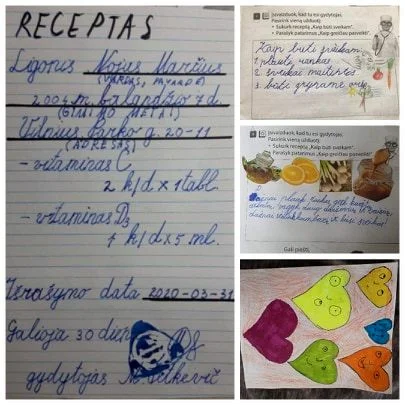 RECEPTAS
Ligonis Nojus Marčius
(VARDAS, PAVARDĖ)
2004 m. balandžio 7 d.
(GIMIMO METAI)
Vilnius Parko g. 20-11
(ADRESAS)
- vitaminas C
2 k/d x 1 tabl.
- vitaminas D3
1 k/d x 5 ml.
Išrašymo data 2020-03-31
Galioja 30 dien
gydytojas
Įsivaizduok, kad tu esi gydytojas.
Pasirink vieną užduotį:
• Sukurk receptą „Kaip būti sveikam“.
• Parašyk patarimus „Kaip greičiau pasveikti“.
Kaip būti sveikam.
1. plauti rankas
2. sveikai maitintis
3. būti gryname ore
Įsivaizduok, kad tu esi gydytojas.
Pasirink vieną užduotį:
• Sukurk receptą „Kaip būti sveikam“.
• Parašyk patarimus „Kaip greičiau pasveikti“.
plauk rankas, gerk
valgyk daug daržovių ir vaisių,
dažnai kambarį ir būsi sveikas!
Gali piešti.